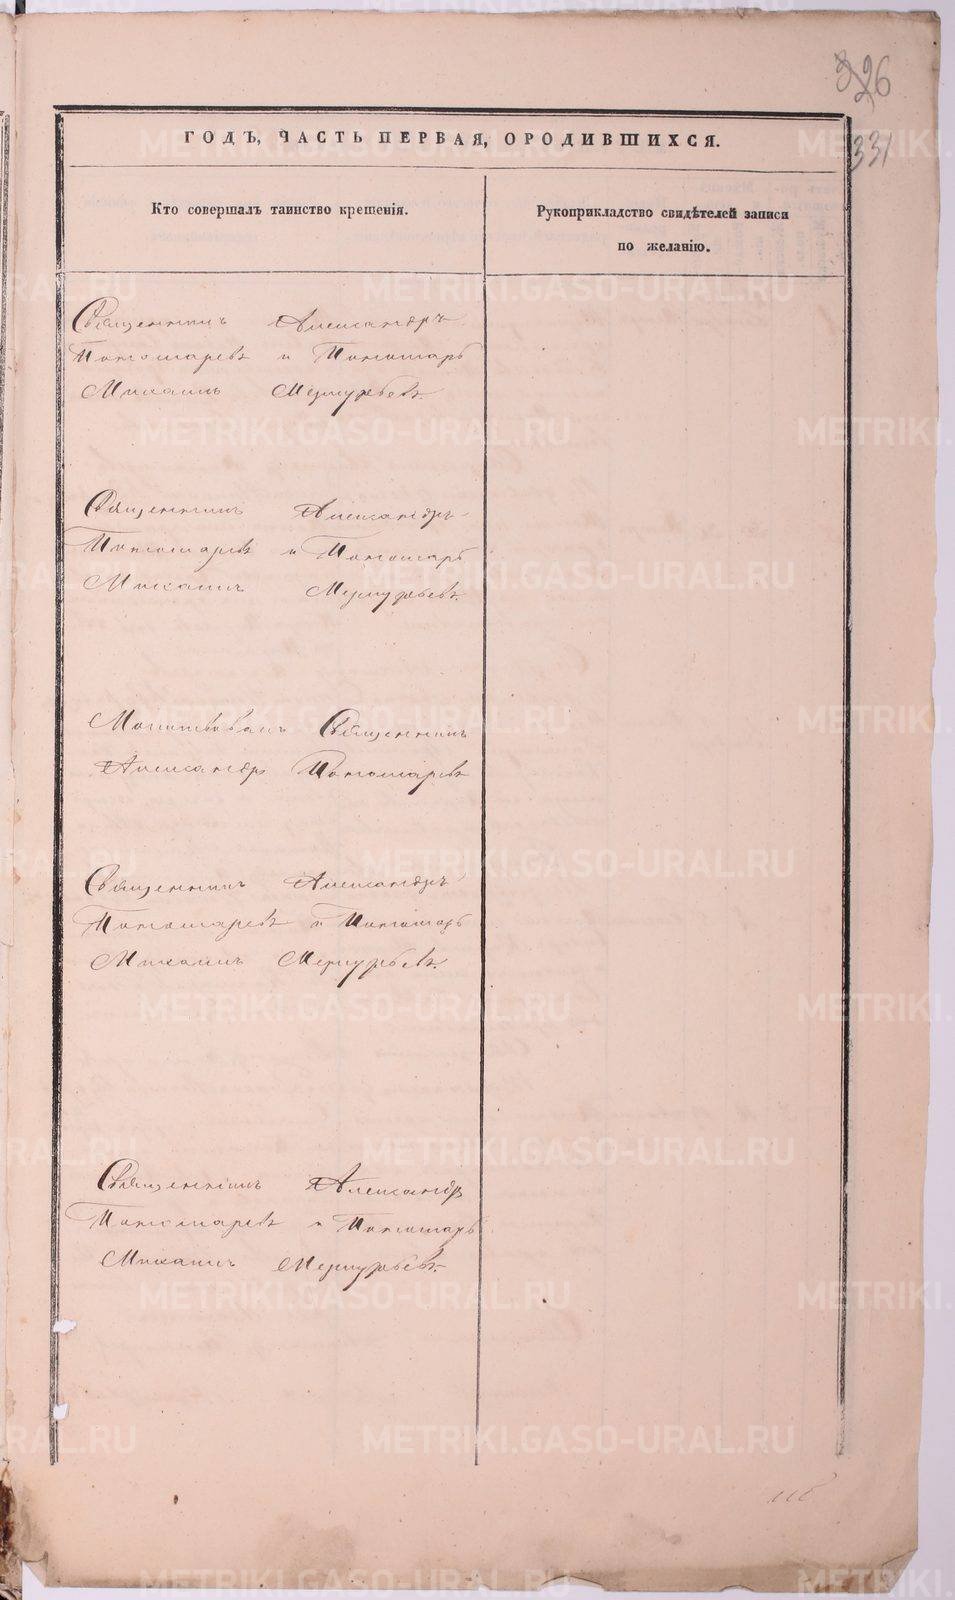 326
331
ГОДЪ, ЧАСТЬ ПЕРВАЯ, ОРОДИВШИХСЯ.
Кто совершалъ таинство крещенія.
Рукоприкладство свидѣтелей записи
по желанію.
Священникъ Александръ
Пономаревъ и Пономарь
Михаилъ Меркурьевъ.
Священникъ Александръ
Пономаревъ и Пономарь
Михаилъ Меркурьевъ.
Молитвовалъ Священникъ
Александръ Пономаревъ
Священникъ Александръ
Пономаревъ и Пономарь
Михаилъ Меркурьевъ.
Священникъ Александръ
Пономаревъ и Пономарь
Михаилъ Меркурьевъ.
METRIKI.GASO-URAL.RU